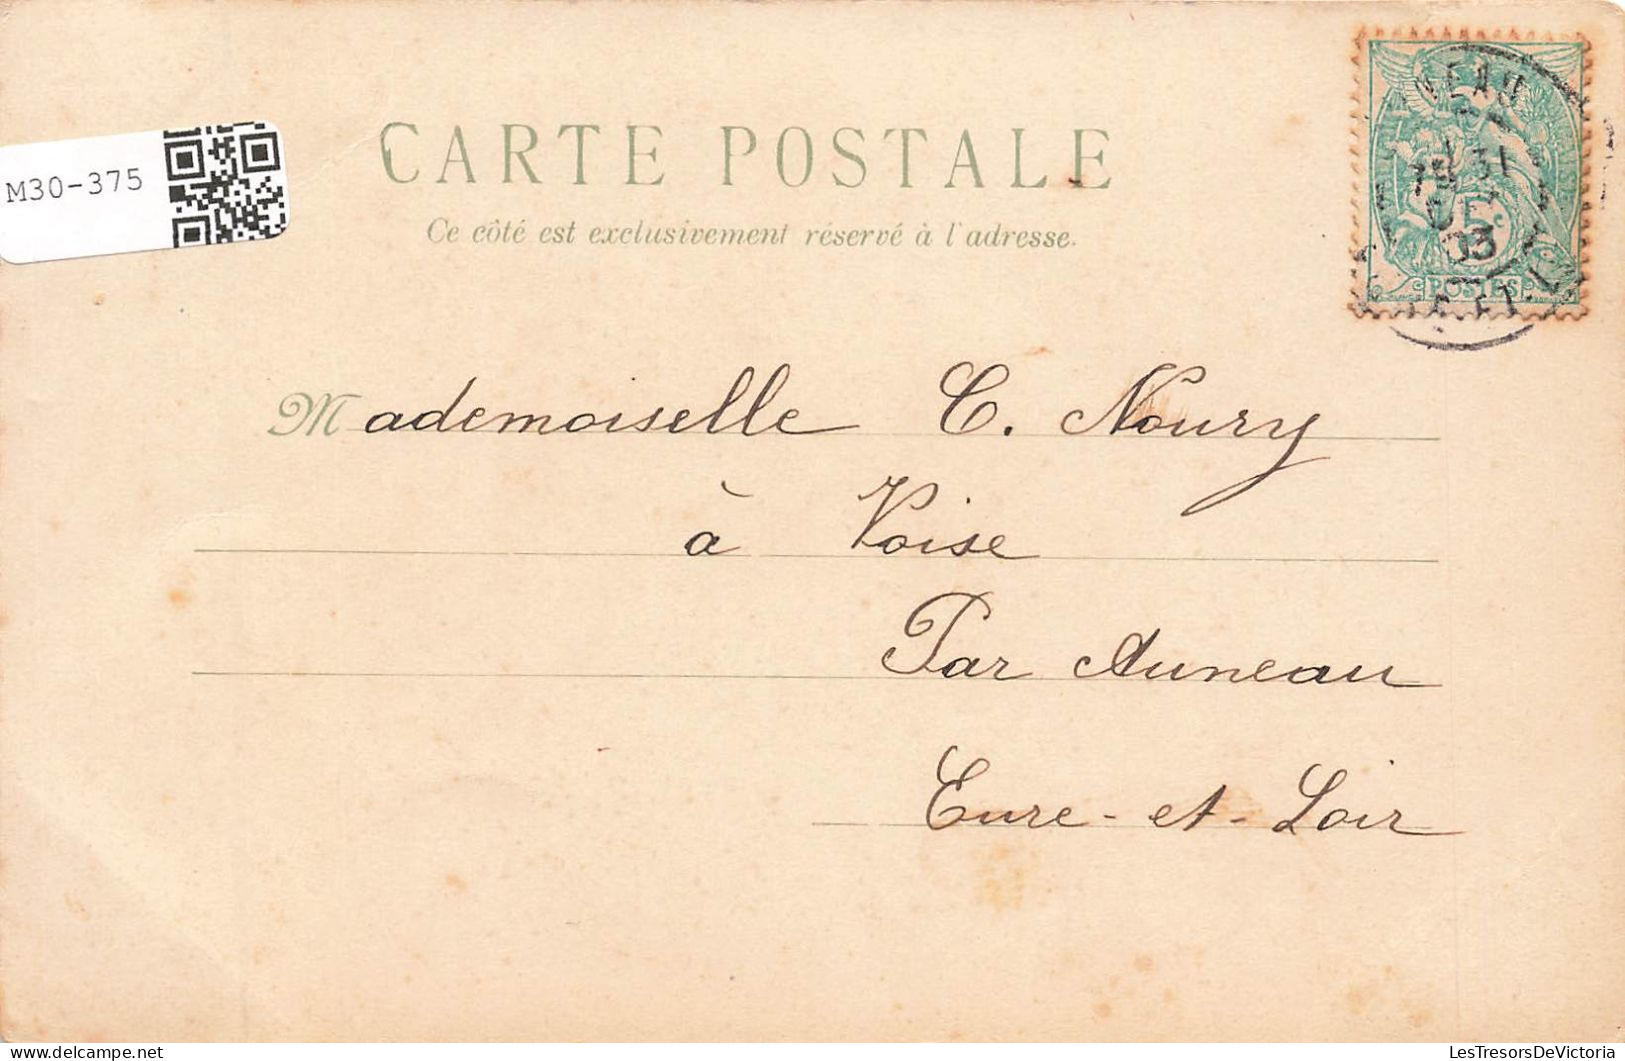 M30-375
CARTE POSTALE
Ce côté est exclusivement réservé à l'adresse.
5c
03
POSTES
Mademoiselle C. Noury
à Voise
Par Auneau
Eure-et-Loir
LesTresorsDeVictoria